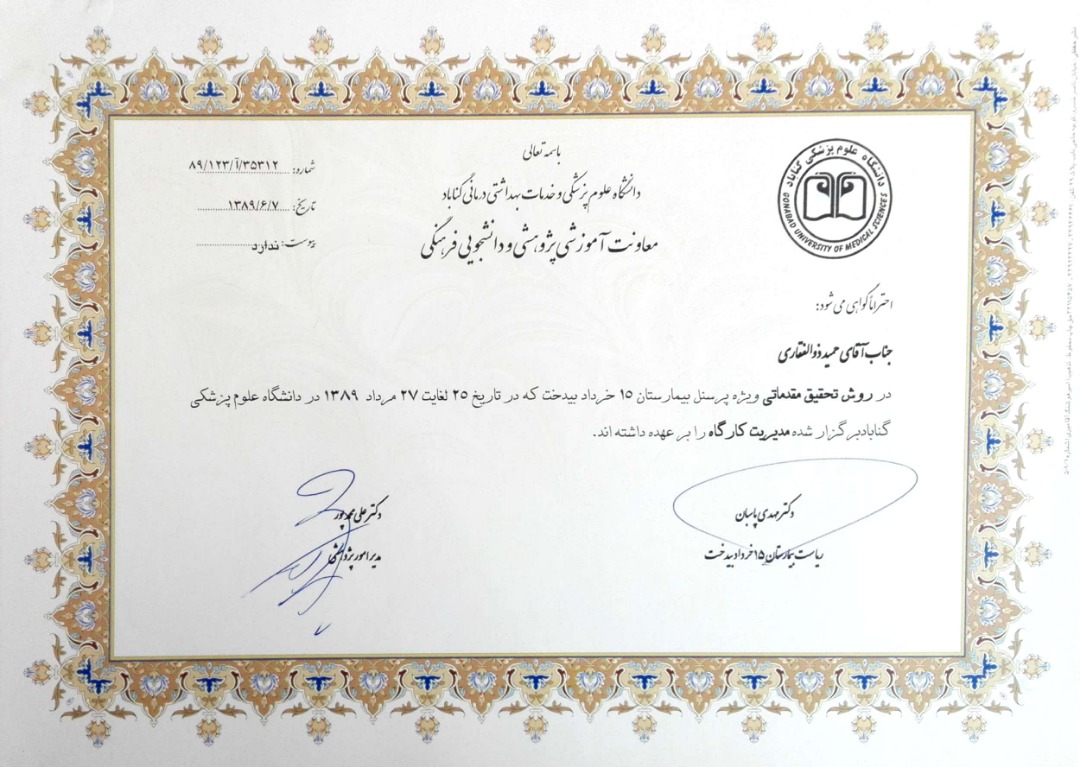 باسمه تعالی
دانشگاه علوم پزشکی و خدمات بهداشتی درمانی گناباد
معاونت آموزشی پژوهشی و دانشجویی فرهنگی
دانشگاه علوم پزشکی گناباد
GONABAD UNIVERSITY OF MEDICAL SCIENCES
شماره: ۸۹/۱۲۳/آ/۳۵۳۱۲
تاریخ: ۱۳۸۹/۶/۷
پیوست: ندارد
احتراماً گواهی می شود:
جناب آقای حمید ذوالفقاری
در روش تحقیق مقدماتی ویژه پرسنل بیمارستان ۱۵ خرداد بیدخت که در تاریخ ۲۵ لغایت ۲۷ مرداد ۱۳۸۹ در دانشگاه علوم پزشکی
گنابادبرگزار شده مدیریت کارگاه را بر عهده داشته اند.
دکتر مهدی پاسبان
ریاست بیمارستان ۱۵ خرداد بیدخت
دکتر علی محمدپور
مدیر امور پژوهشی